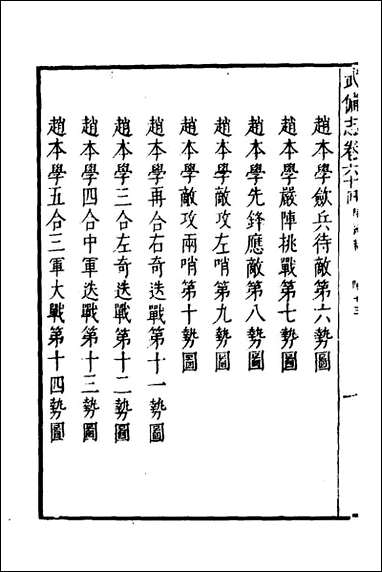 武備志卷六十
趙本學斂兵待敵第六勢圖
趙本學嚴陣挑戰第七勢圖
趙本學先鋒應敵第八勢圖
趙本學敵攻左哨第九勢圖
趙本學敵攻兩哨第十勢圖
趙本學再合右奇迭戰第十一勢圖
趙本學三合左奇迭戰第十二勢圖
趙本學四合中軍迭戰第十三勢圖
趙本學五合三軍大戰第十四勢圖